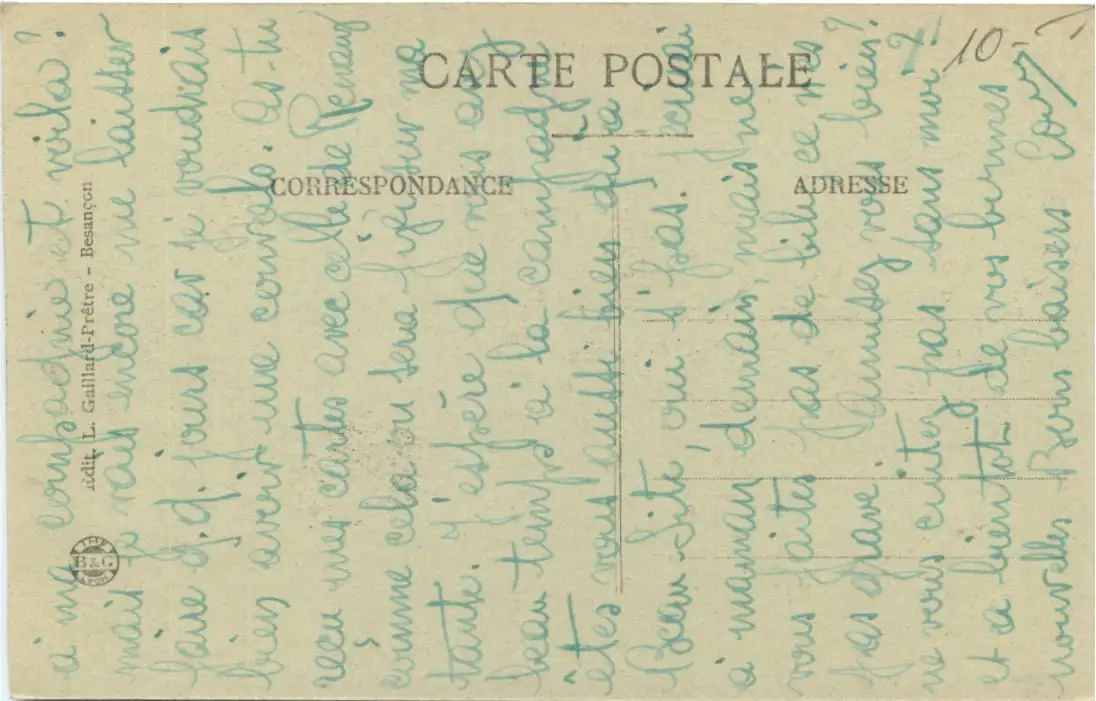 CARTE POSTALE
CORRESPONDANCE
ADRESSE
Édit. L. Gaillard-Prêtre - Besançon
B&G
10-
à ma compagnie et voilà?
mais je vais encore me laisser
faire q.q. jours car je voudrais
bien avoir une convalo. As-tu
reçu mes cartes avec celle de
comme cela ou sera sur ma
tante. J'espère que vous avez
beau temps à la campagne
êtes vous aussi bien qu'a
Beau-Site, oui n'pas. J'écrirai
à maman, demain, mais ne
vous faites pas de bile ce n'est
pas grave! Amusez vous bien?
ne vous cuitez pas sans moi?!
et a bientôt de vos bonnes
nouvelles - Bons baisers